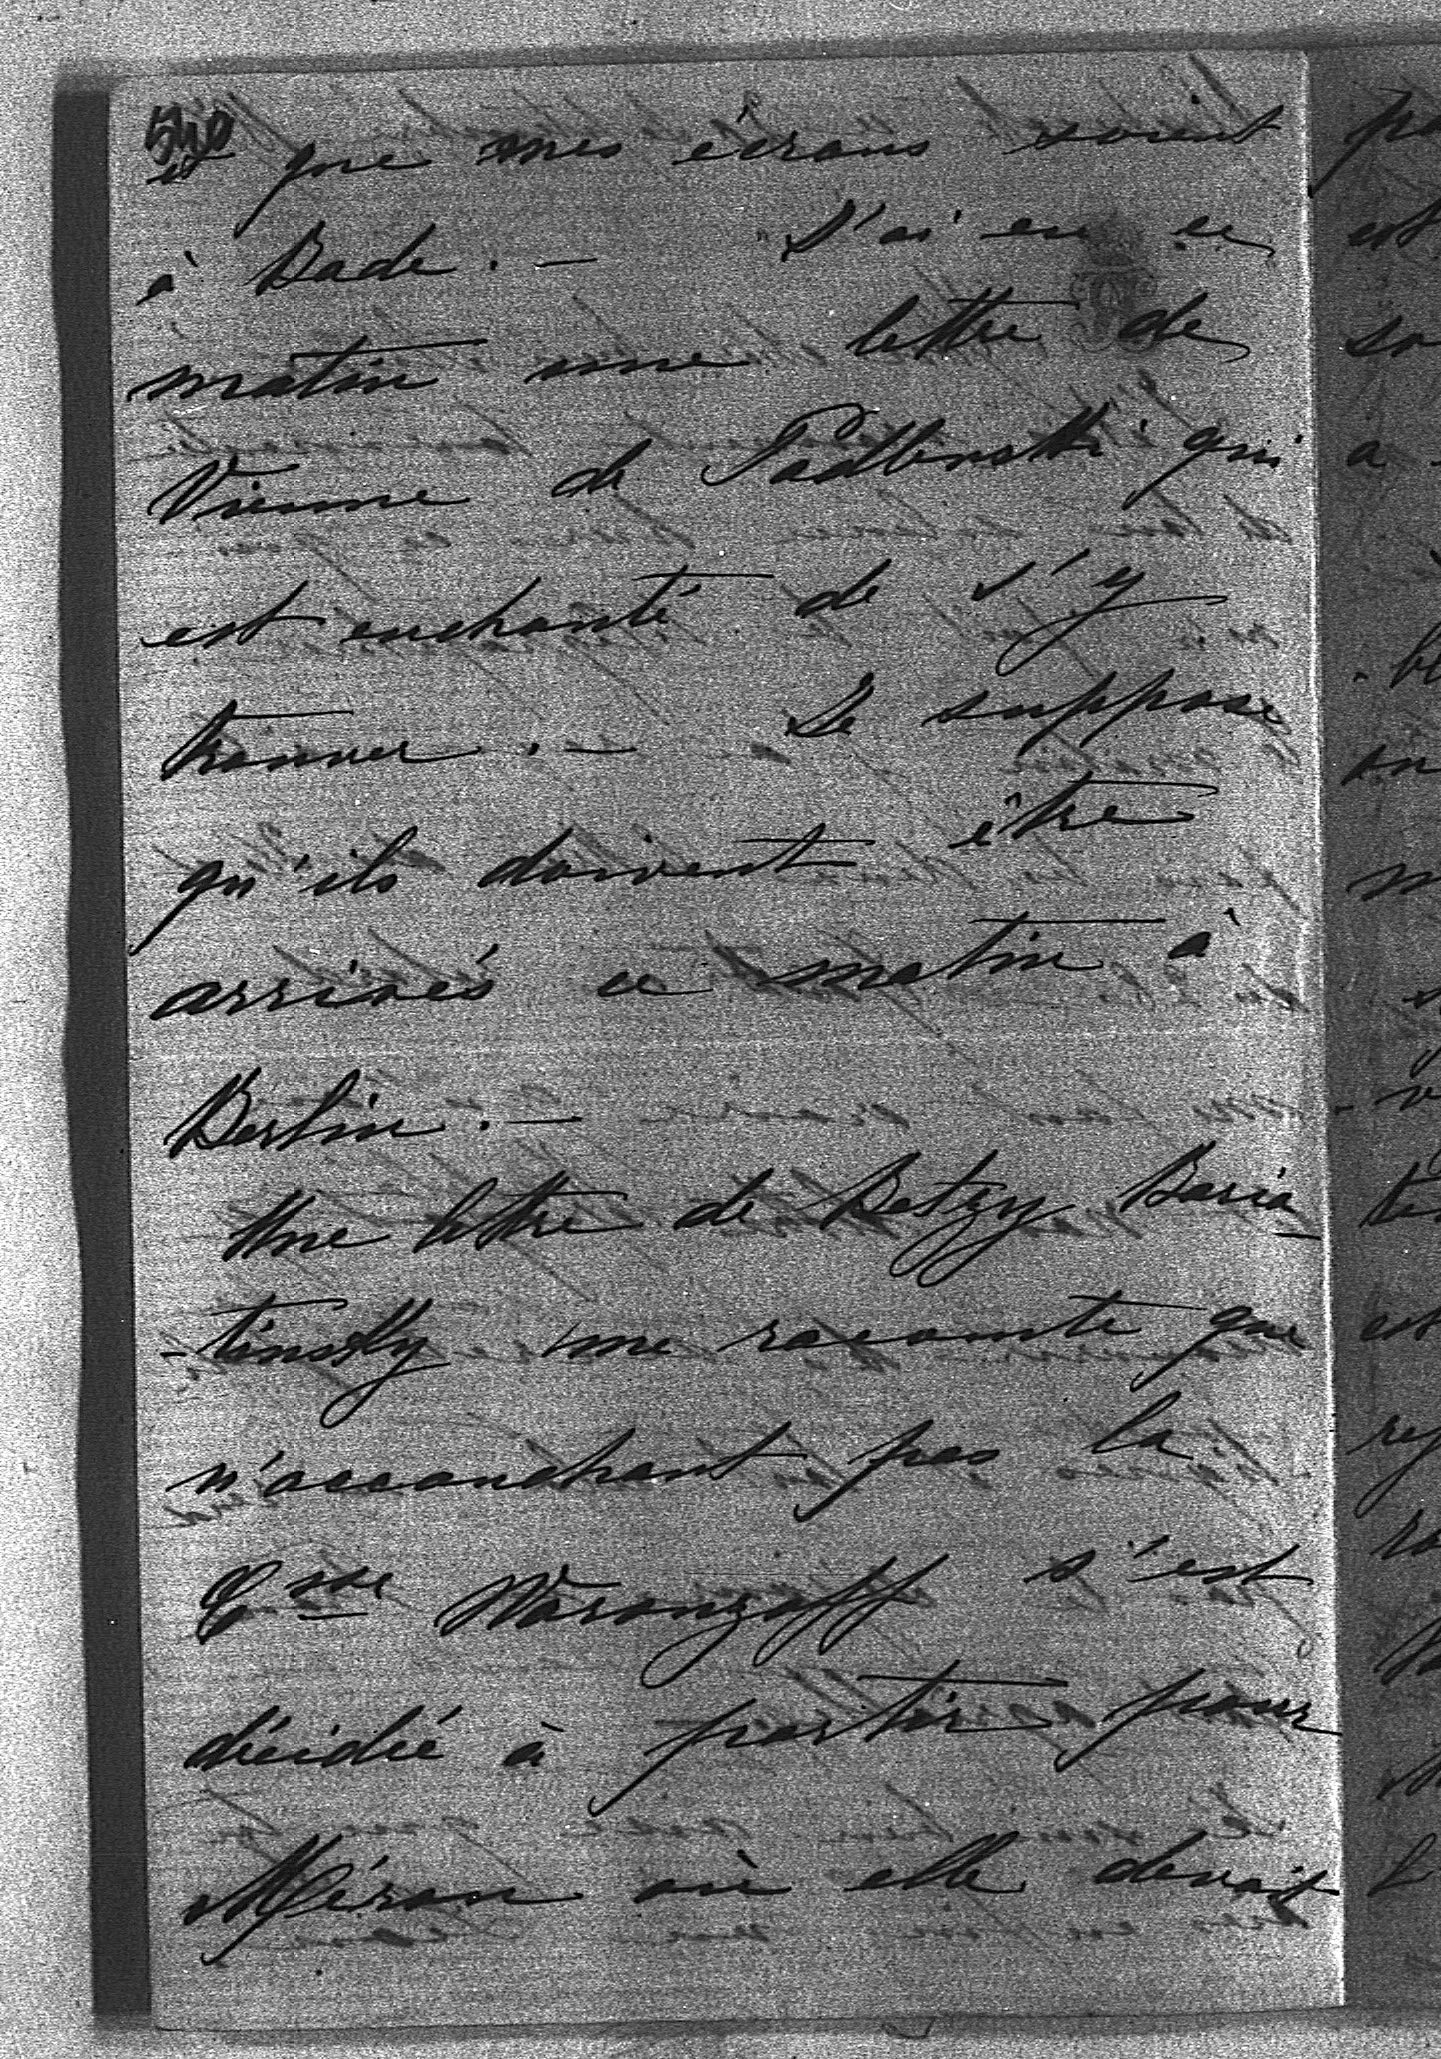 540
et que mes écrans soient
à Bade. — J'ai eu ce
matin une lettre de
Vienne de qui
est enchanté de s'y
trouver. — Je suppose
qu'ils doivent être
arrivés ce matin à
Berlin. —
Une lettre de Betzy Baria-
-tinsky me raconte que
n'accouchant pas la
Csse Woronzoff s'est
décidé à partir pour
Méran où elle devait